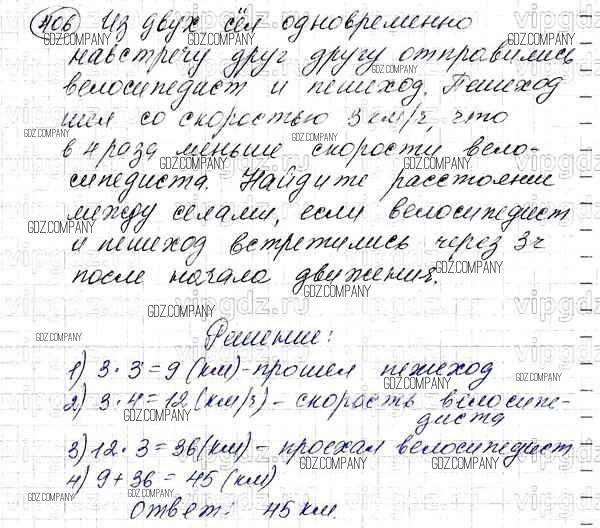 406 Из двух сёл одновременно
навстречу друг другу отправились
велосипедист и пешеход. Пешеход
шел со скоростью 3 км/ч, что
в 4 раза меньше скорости вело-
сипедиста. Найдите расстояние
между селами, если велосипедист
и пешеход встретились через 3ч
после начала движения.
Решение:
1) 3 · 3 = 9 (км) - прошел пешеход
2) 3 · 4 = 12 (км/ч) - скорость велосипе-
диста
3) 12 · 3 = 36 (км) - проехал велосипедист
4) 9 + 36 = 45 (км)
Ответ: 45 км
GDZ.COMPANY
vipgdz.ru